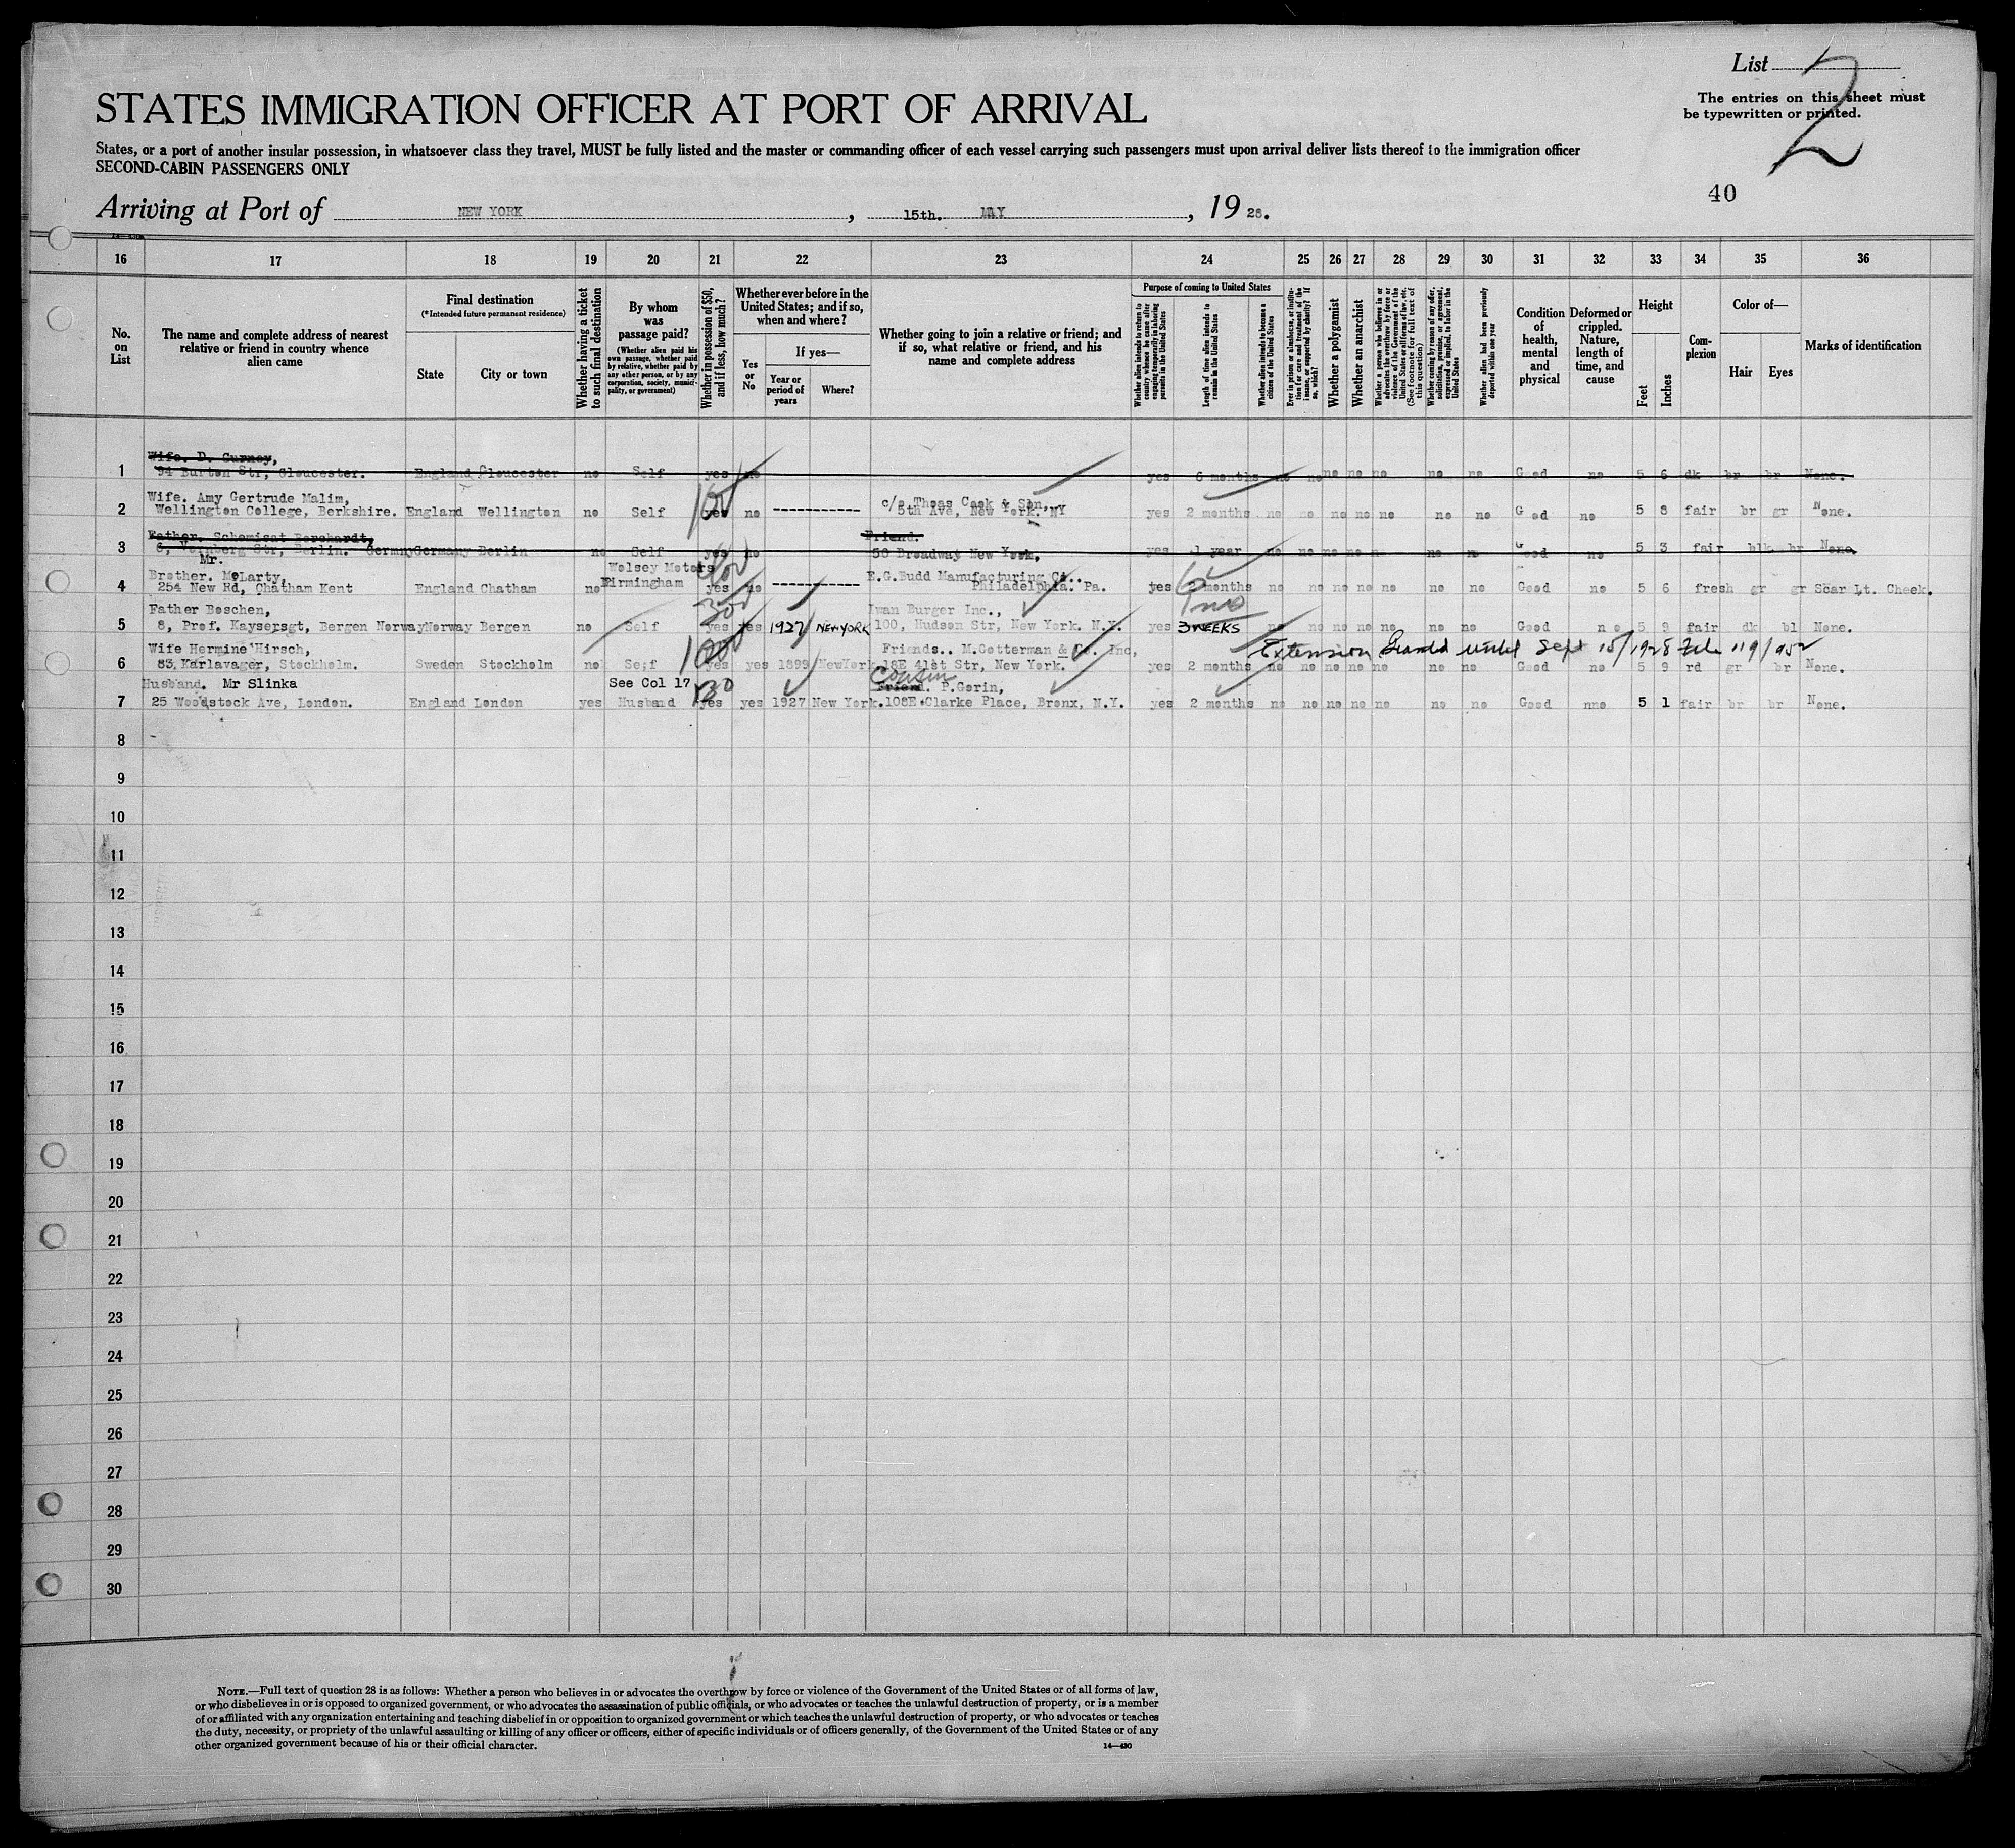 List 2
The entries on this sheet must
be typewritten or printed.
STATES IMMIGRATION OFFICER AT PORT OF ARRIVAL
States, or a port of another insular possession, in whatsoever class they travel, MUST be fully listed and the master or commanding officer of each vessel carrying such passengers must upon arrival deliver lists thereof to the immigration officer
SECOND-CABIN PASSENGERS ONLY
40
Arriving at Port of NEW YORK, 15th. MAY, 1928.
16 17 18 19 20 21 22 23 24 25 26 27 28 29 30 31 32 33 34 35 36
No. on List
The name and complete address of nearest relative or friend in country whence alien came
Final destination
(*Intended future permanent residence)
State
City or town
Whether having a ticket to such final destination
By whom was passage paid?
(Whether alien paid his own passage, whether paid by relative, whether paid by any other person, or by any corporation, society, municipality, or government)
Whether in possession of $50, and if less, how much?
Whether ever before in the United States; and if so, when and where?
Yes or No
If yes—
Year or period of years
Where?
Whether going to join a relative or friend; and if so, what relative or friend, and his name and complete address
Purpose of coming to United States
Whether alien intends to return to country whence he came after engaging temporarily in laboring pursuits in the United States
Length of time alien intends to remain in the United States
Whether alien intends to become a citizen of the United States
Ever in prison or almshouse, or institution for care and treatment of the insane, or supported by charity? If so, which?
Whether a polygamist
Whether an anarchist
Whether a person who believes in or advocates the overthrow by force or violence of the Government of the United States or all forms of law, etc. (See footnote for full text of this question)
Whether coming by reason of any offer, solicitation, promise, or agreement, expressed or implied, to labor in the United States
Whether alien had been previously deported within one year
Condition of health, mental and physical
Deformed or crippled. Nature, length of time, and cause
Height
Feet
Inches
Complexion
Color of—
Hair
Eyes
Marks of identification
Wife. D. Gurney,
1 94 Burton Str, Gloucester. England Gloucester no Self yes no yes 6 months no no no no no no no Good no 5 6 dk br br None.
Wife. Amy Gertrude Malim, c/o Thos Cook & Son,
2 Wellington College, Berkshire. England Wellington no Self 100 yes no ------------ 5th Ave, New York. NY yes 2 months no no no no no no no Good no 5 8 fair br gr None.
Father. Schemisat Borchardt, Friend.
3 Str, Berlin. Germny Germany Berlin no Self yes no 50 Broadway New York. yes 1 year no no no no no no no Good no 5 3 fair blk br None.
Mr.
Brother. McLarty, Wolsey Motors E.G.Budd Manufacturing Co.. 6
4 254 New Rd, Chatham Kent England Chatham no Birmingham yes no ------------ Philadelphia. Pa. yes months no no no no no no no Good no 5 6 fresh gr gr Scar Lt. Cheek.
Father Beschen, 300 Iwan Burger Inc.,
5 8, Prof. Kaysersgt, Bergen Norway Norway Bergen no Self yes yes 1927 NEW YORK 100, Hudson Str, New York. N.Y. yes 3 WEEKS no no no no no no no Good no 5 9 fair dk bl None.
Wife Hermine Hirsch, 1000 Friends.. M.Gotterman & Co. Inc, Extension Granted until Sept 15/1928 File 119/952
6 83, Karlavager, Stockholm. Sweden Stockholm no Self yes yes 1899 New York 18E 41st Str, New York. yes 2 months no no no no no no no Good no 5 9 rd gr br None.
Husband. Mr Slinka See Col 17 Cousin Friend. P.Gorin,
7 25 Woodstock Ave, London. England London yes Husband yes yes 1927 New York. 108E Clarke Place, Bronx, N.Y. yes 2 months no no no no no no no Good nno 5 1 fair br br None.
8
9
10
11
12
13
14
15
16
17
18
19
20
21
22
23
24
25
26
27
28
29
30
NOTE.—Full text of question 28 is as follows: Whether a person who believes in or advocates the overthrow by force or violence of the Government of the United States or of all forms of law,
or who disbelieves in or is opposed to organized government, or who advocates the assassination of public officials, or who advocates or teaches the unlawful destruction of property, or is a member
of or affiliated with any organization entertaining and teaching disbelief in or opposition to organized government or which teaches the unlawful destruction of property, or who advocates or teaches
the duty, necessity, or propriety of the unlawful assaulting or killing of any officer or officers, either of specific individuals or of officers generally, of the Government of the United States or of any
other organized government because of his or their official character.
14—430